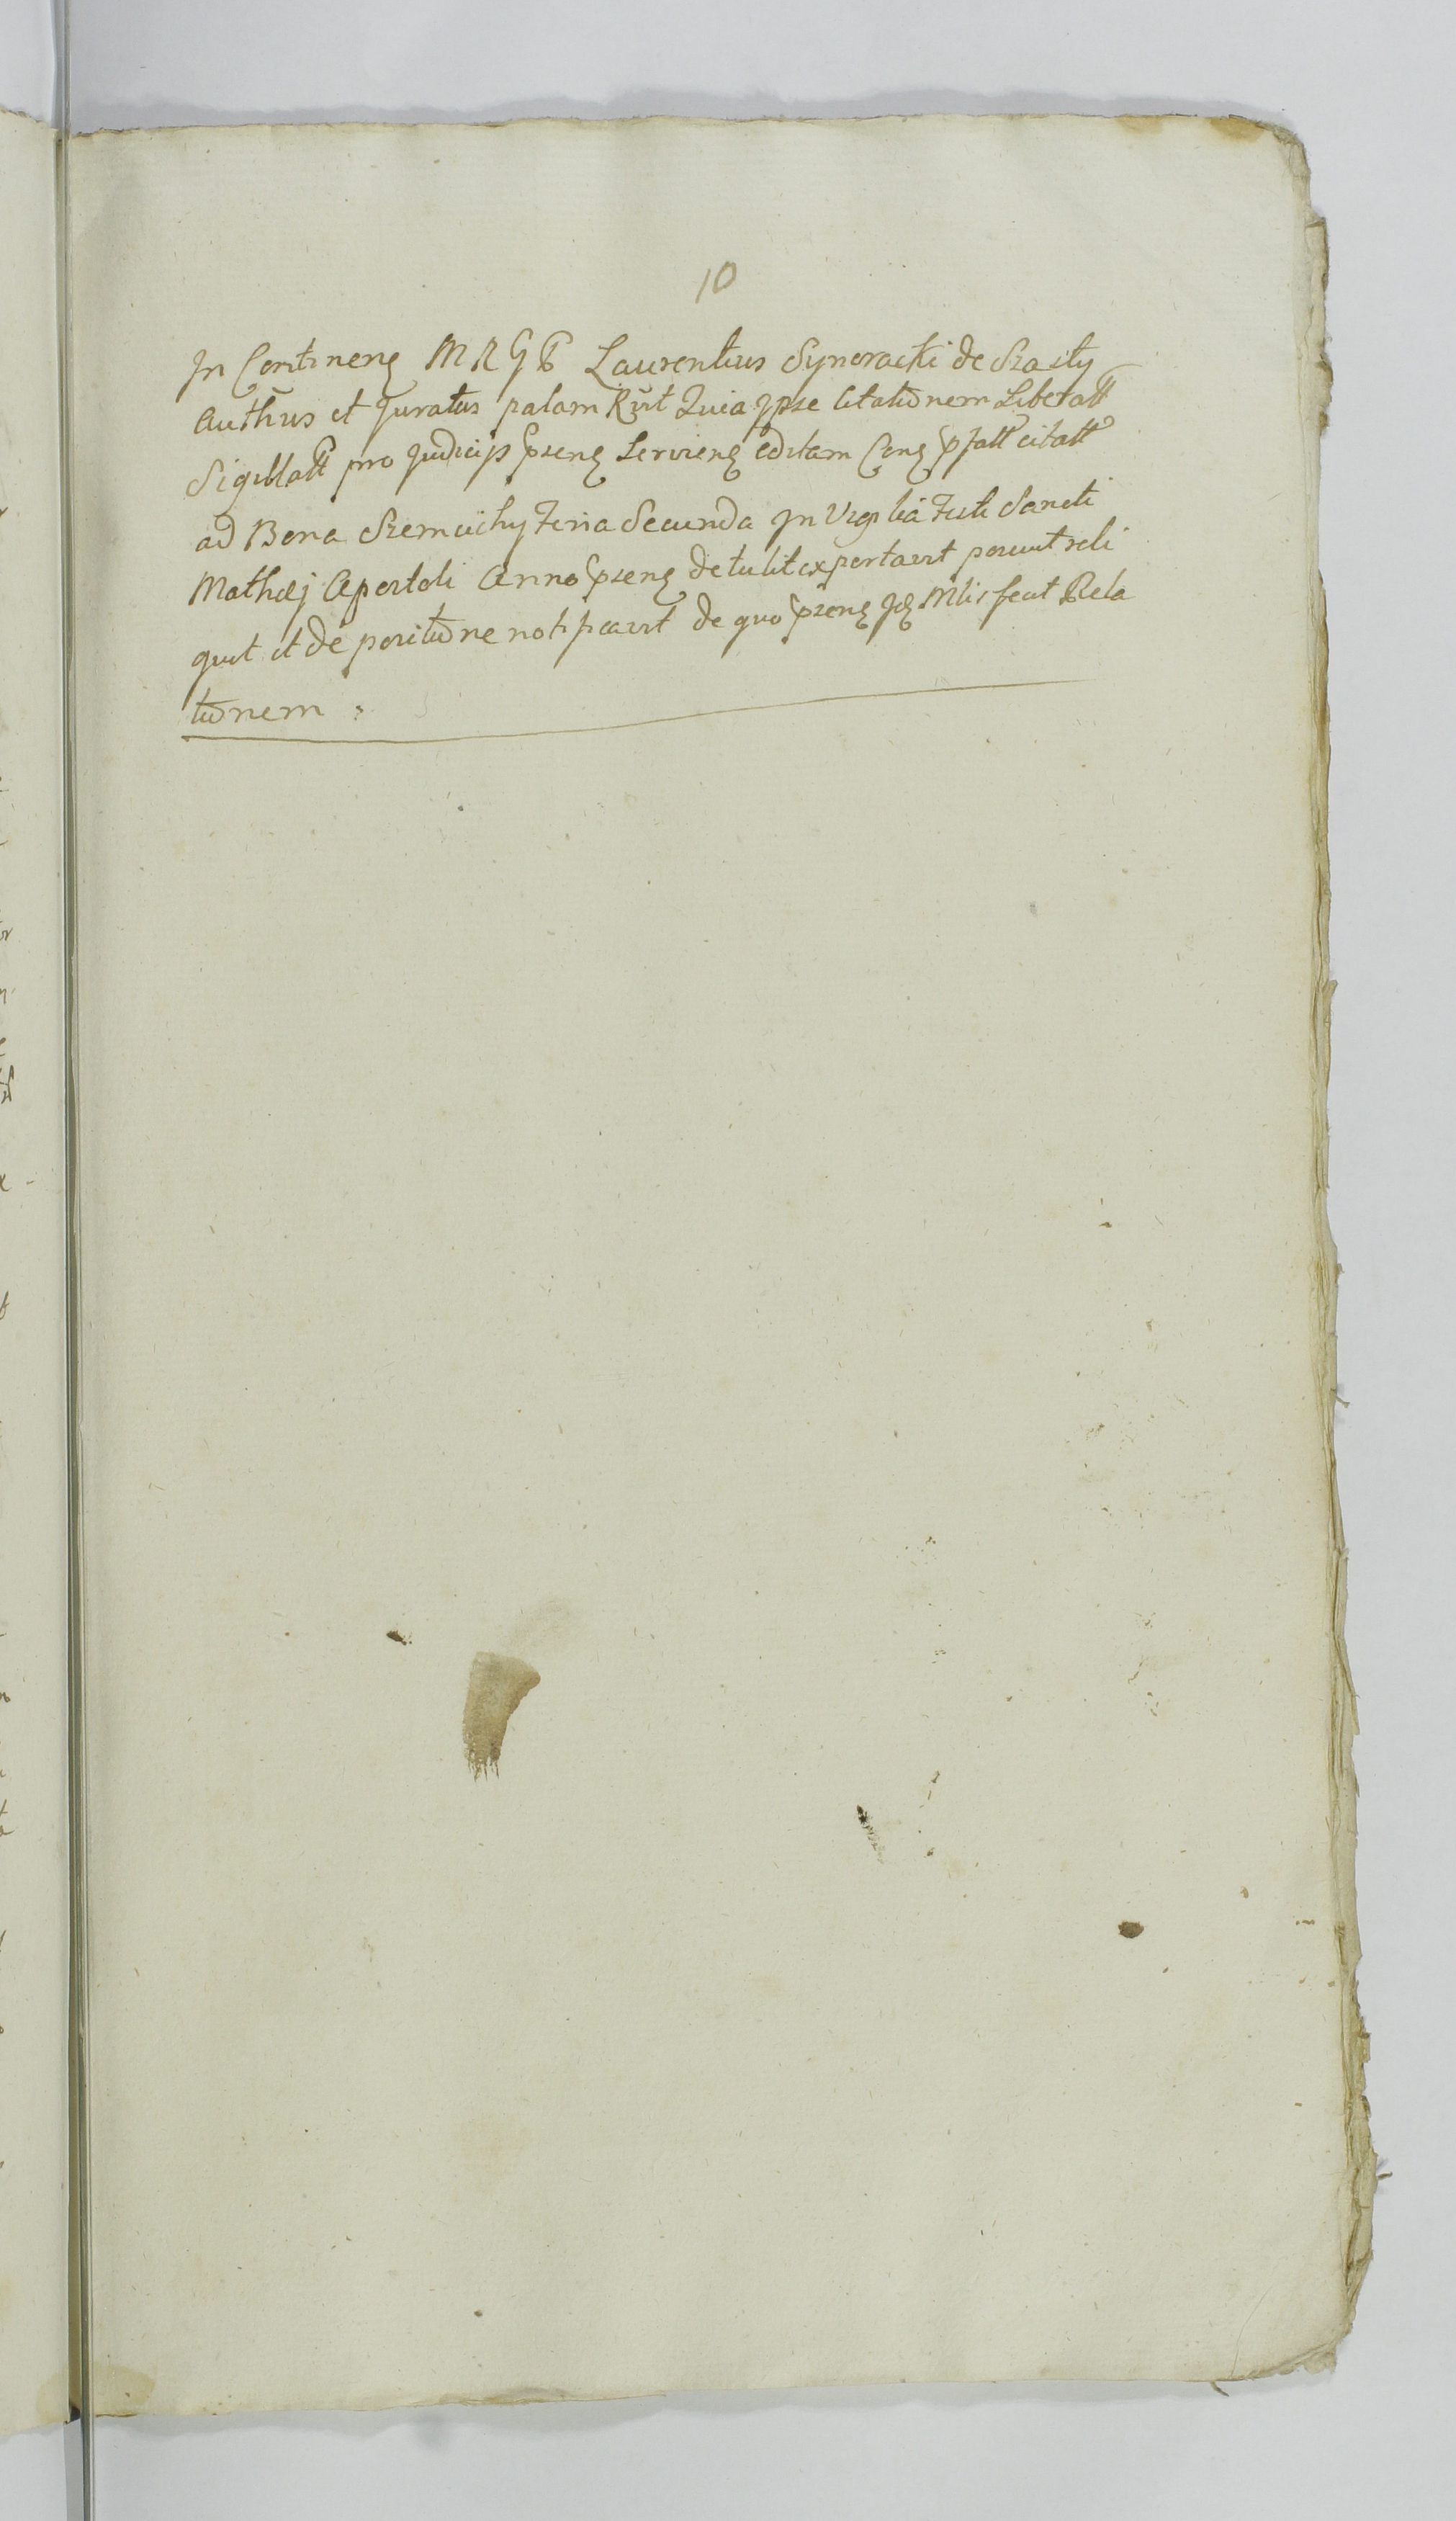 10
In Continenẽ M R G P Laurentius Synoracki de Szasity
Auth̃us et Juratus palam Rũt Quia Ipse Citationem Literatt
Sigillatt pro Judicijs p̃senẽ Servienẽ editam Conẽ p̃fatt citatt
ad Bona Szemiichy Feria Secunda In Vigilia Festi Sancti
Mathæj Apostoli Anno p̃senẽ detulit exportavit posuit reli
quit et de positione notificavit de quo p̃senẽ Idẽ Mlis fecit Rela
tionem